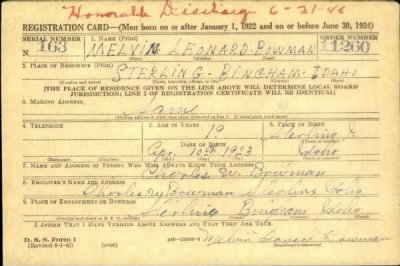 Honorable Discharge 6-21-46
REGISTRATION CARD—(Men born on or after January 1, 1922 and on or before June 30, 1924)
SERIAL NUMBER 1. NAME (Print) ORDER NUMBER
163 MELVIN LEONARD BOWMAN 11260
2. PLACE OF RESIDENCE (Print)
STERLING - BINGHAM - IDAHO
[THE PLACE OF RESIDENCE GIVEN ON THE LINE ABOVE WILL DETERMINE LOCAL BOARD
JURISDICTION; LINE 2 OF REGISTRATION CERTIFICATE WILL BE IDENTICAL]
3. MAILING ADDRESS
Same
4. TELEPHONE 5. AGE IN YEARS 6. PLACE OF BIRTH
19 Sterling
DATE OF BIRTH
Apr. 10th 1923 Idaho
7. NAME AND ADDRESS OF PERSON WHO WILL ALWAYS KNOW YOUR ADDRESS
Charles W. Bowman
8. EMPLOYER'S NAME AND ADDRESS
Charles W Bowman Sterling Idaho
9. PLACE OF EMPLOYMENT OR BUSINESS
Sterling Bingham Idaho
I AFFIRM THAT I HAVE VERIFIED ABOVE ANSWERS AND THAT THEY ARE TRUE.
D. S. S. Form 1
(Revised 6-1-42) Melvin Leonard Bowman